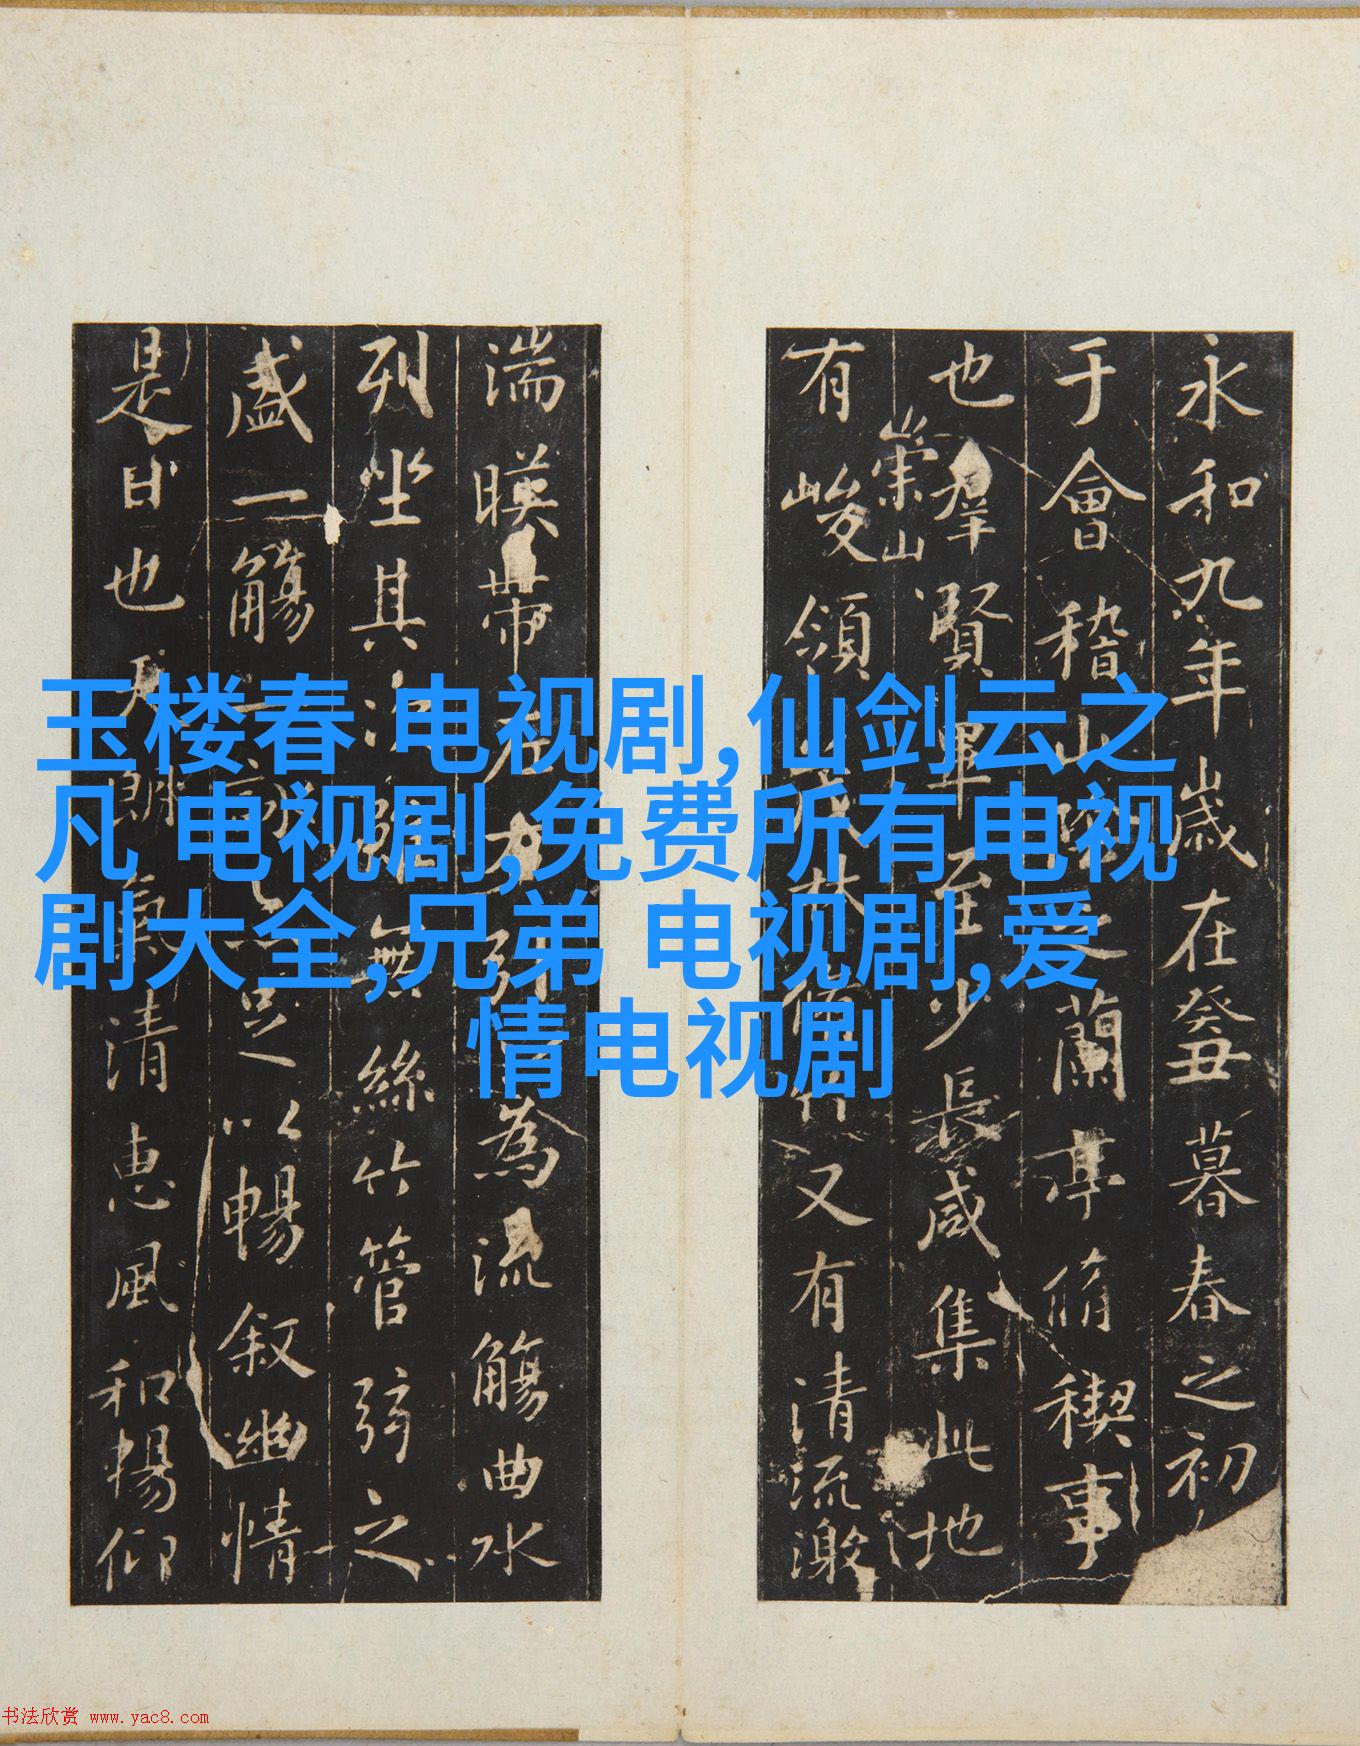 永和九年歲在癸丑暮春之初
于會稽山陰之蘭亭脩稧事
也羣賢畢至少長咸集此地
有崇山峻領茂林脩竹又有清流激
湍暎帶左右引以為流觴曲水
列坐其次雖無絲竹管弦之
盛一觴一詠亦足以暢叙幽情
是日也天朗氣清惠風和暢仰
玉楼春 电视剧,仙剑云之
凡 电视剧,免费所有电视
剧大全,兄弟 电视剧,爱
情电视剧
书法欣赏 www.yac8.com